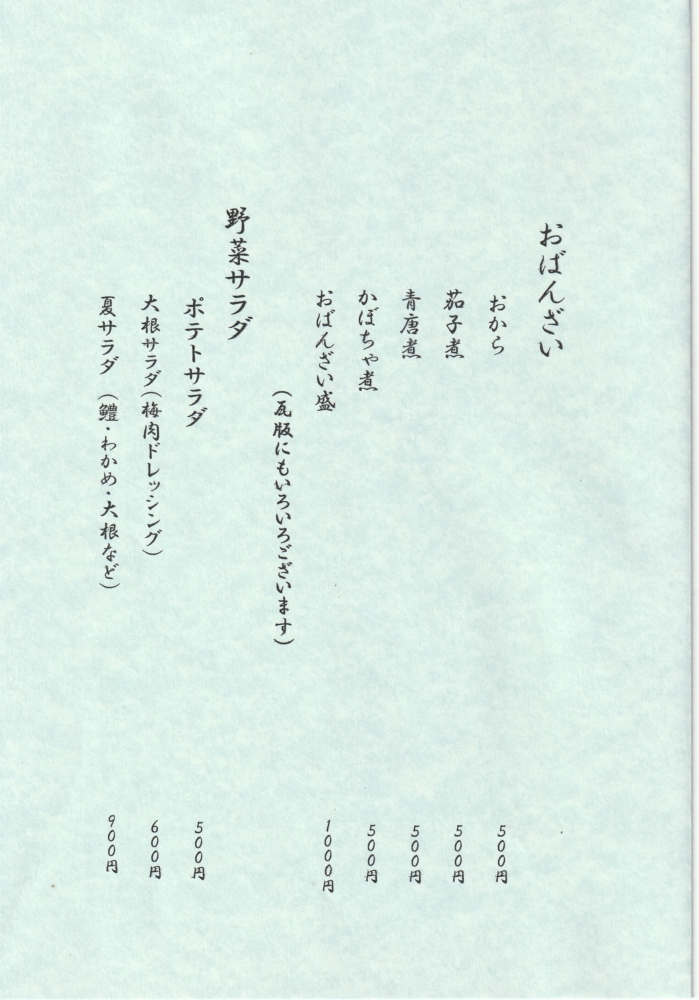 おばんざい
おから 500円
茄子煮 500円
青唐煮 500円
かぼちゃ煮 500円
おばんざい盛 1000円
(瓦版にもいろいろございます)
野菜サラダ
ポテトサラダ 500円
大根サラダ(梅肉ドレッシング) 600円
夏サラダ (鱧・わかめ・大根など) 900円